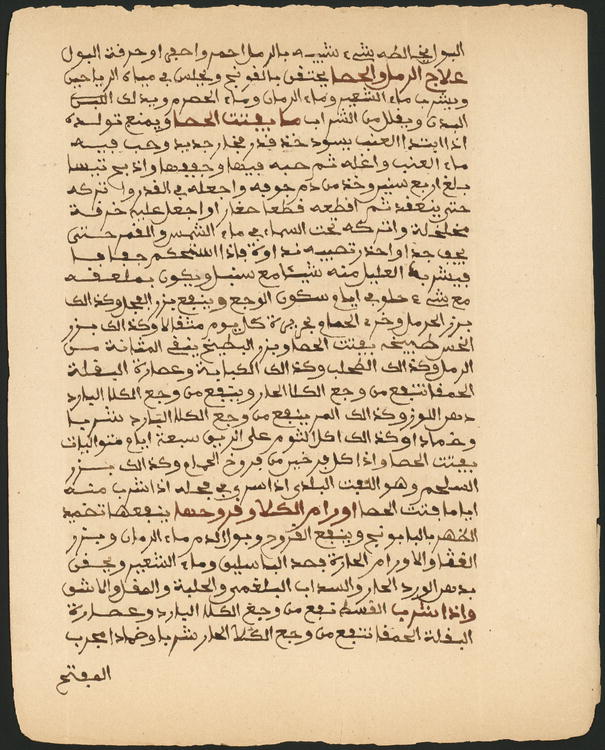 البول يخالطه شيء شبيه بالرمل احمر واحفي او حرقة البول
علاج الرمل والحصا يحتقن بالفونج ويجلس في مياه الرياحين
ويشرب ماء الشعير وماء الرمان وماء الحصرم ويدلك
البدن ويقلل من الشراب ما يفتت الحصا ويمنع تولده
اذا ابتدا العنب يسود خذ قدر فخار جديد وصب فيه
ماء العنب واغله ثم صبه فيها وجففها واذبح تيسا
بلغ اربع سنين وخذ من دم جوفه واجعله في القدر واتركه
حتى ينعقد ثم اقطعه قطعا صغار او اجعل عليه خرقة
مخلخلة واتركه تحت السماء في ماء الشمس والقمر حتى
يجف جدا واحذر تصيبه نداوة فاذا استحكم جفافا
فيشربه العليل منه شيئا مع سنبل ويكون بملعقه
مع شيء حلو في ايام سكون الوجع وينفع بزر الفجل وكذلك
بزر الحرمل وخرء الحمام يجربه كل يوم مثقالا وكذلك بزر
الخس طبيخه يفتت الحصا وبزر البطيخ ينقي المثانة من
الرمل وكذلك الطحلب وكذلك الكبابة وعصارة البقلة
الحمقا تنفع من وجع الكلا الحار وينفع من وجع الكلا البارد
دهن اللوز وكذلك المر ينفع من وجع الكلا البارد شربا
وضمادا وكذلك اكل الثوم على الريق سبعة ايام متواليات
يفتت الحصا واذا اكل فرخين من فروخ الحمام وكذلك بزر
السلجم وهو اللفت البلدي اذا شرب منه
اياما فتت الحصا اورام الكلا وقروحها ينفعها تضميد
الظهر بالبابونج وينفع القروح وبول الدم ماء الرمان وبزر
القثا والاورام الحارة فصد الباسليق وماء الشعير ويحقن
بدهن الورد الحار والسذاب البلغمي والحلبة والمقل والاشق
واذا شرب القسط نفع من وجع الكلا البارد وعصارة
البقلة الحمقا تنفع من وجع الكلا الحار شربا وضمادا مجرب